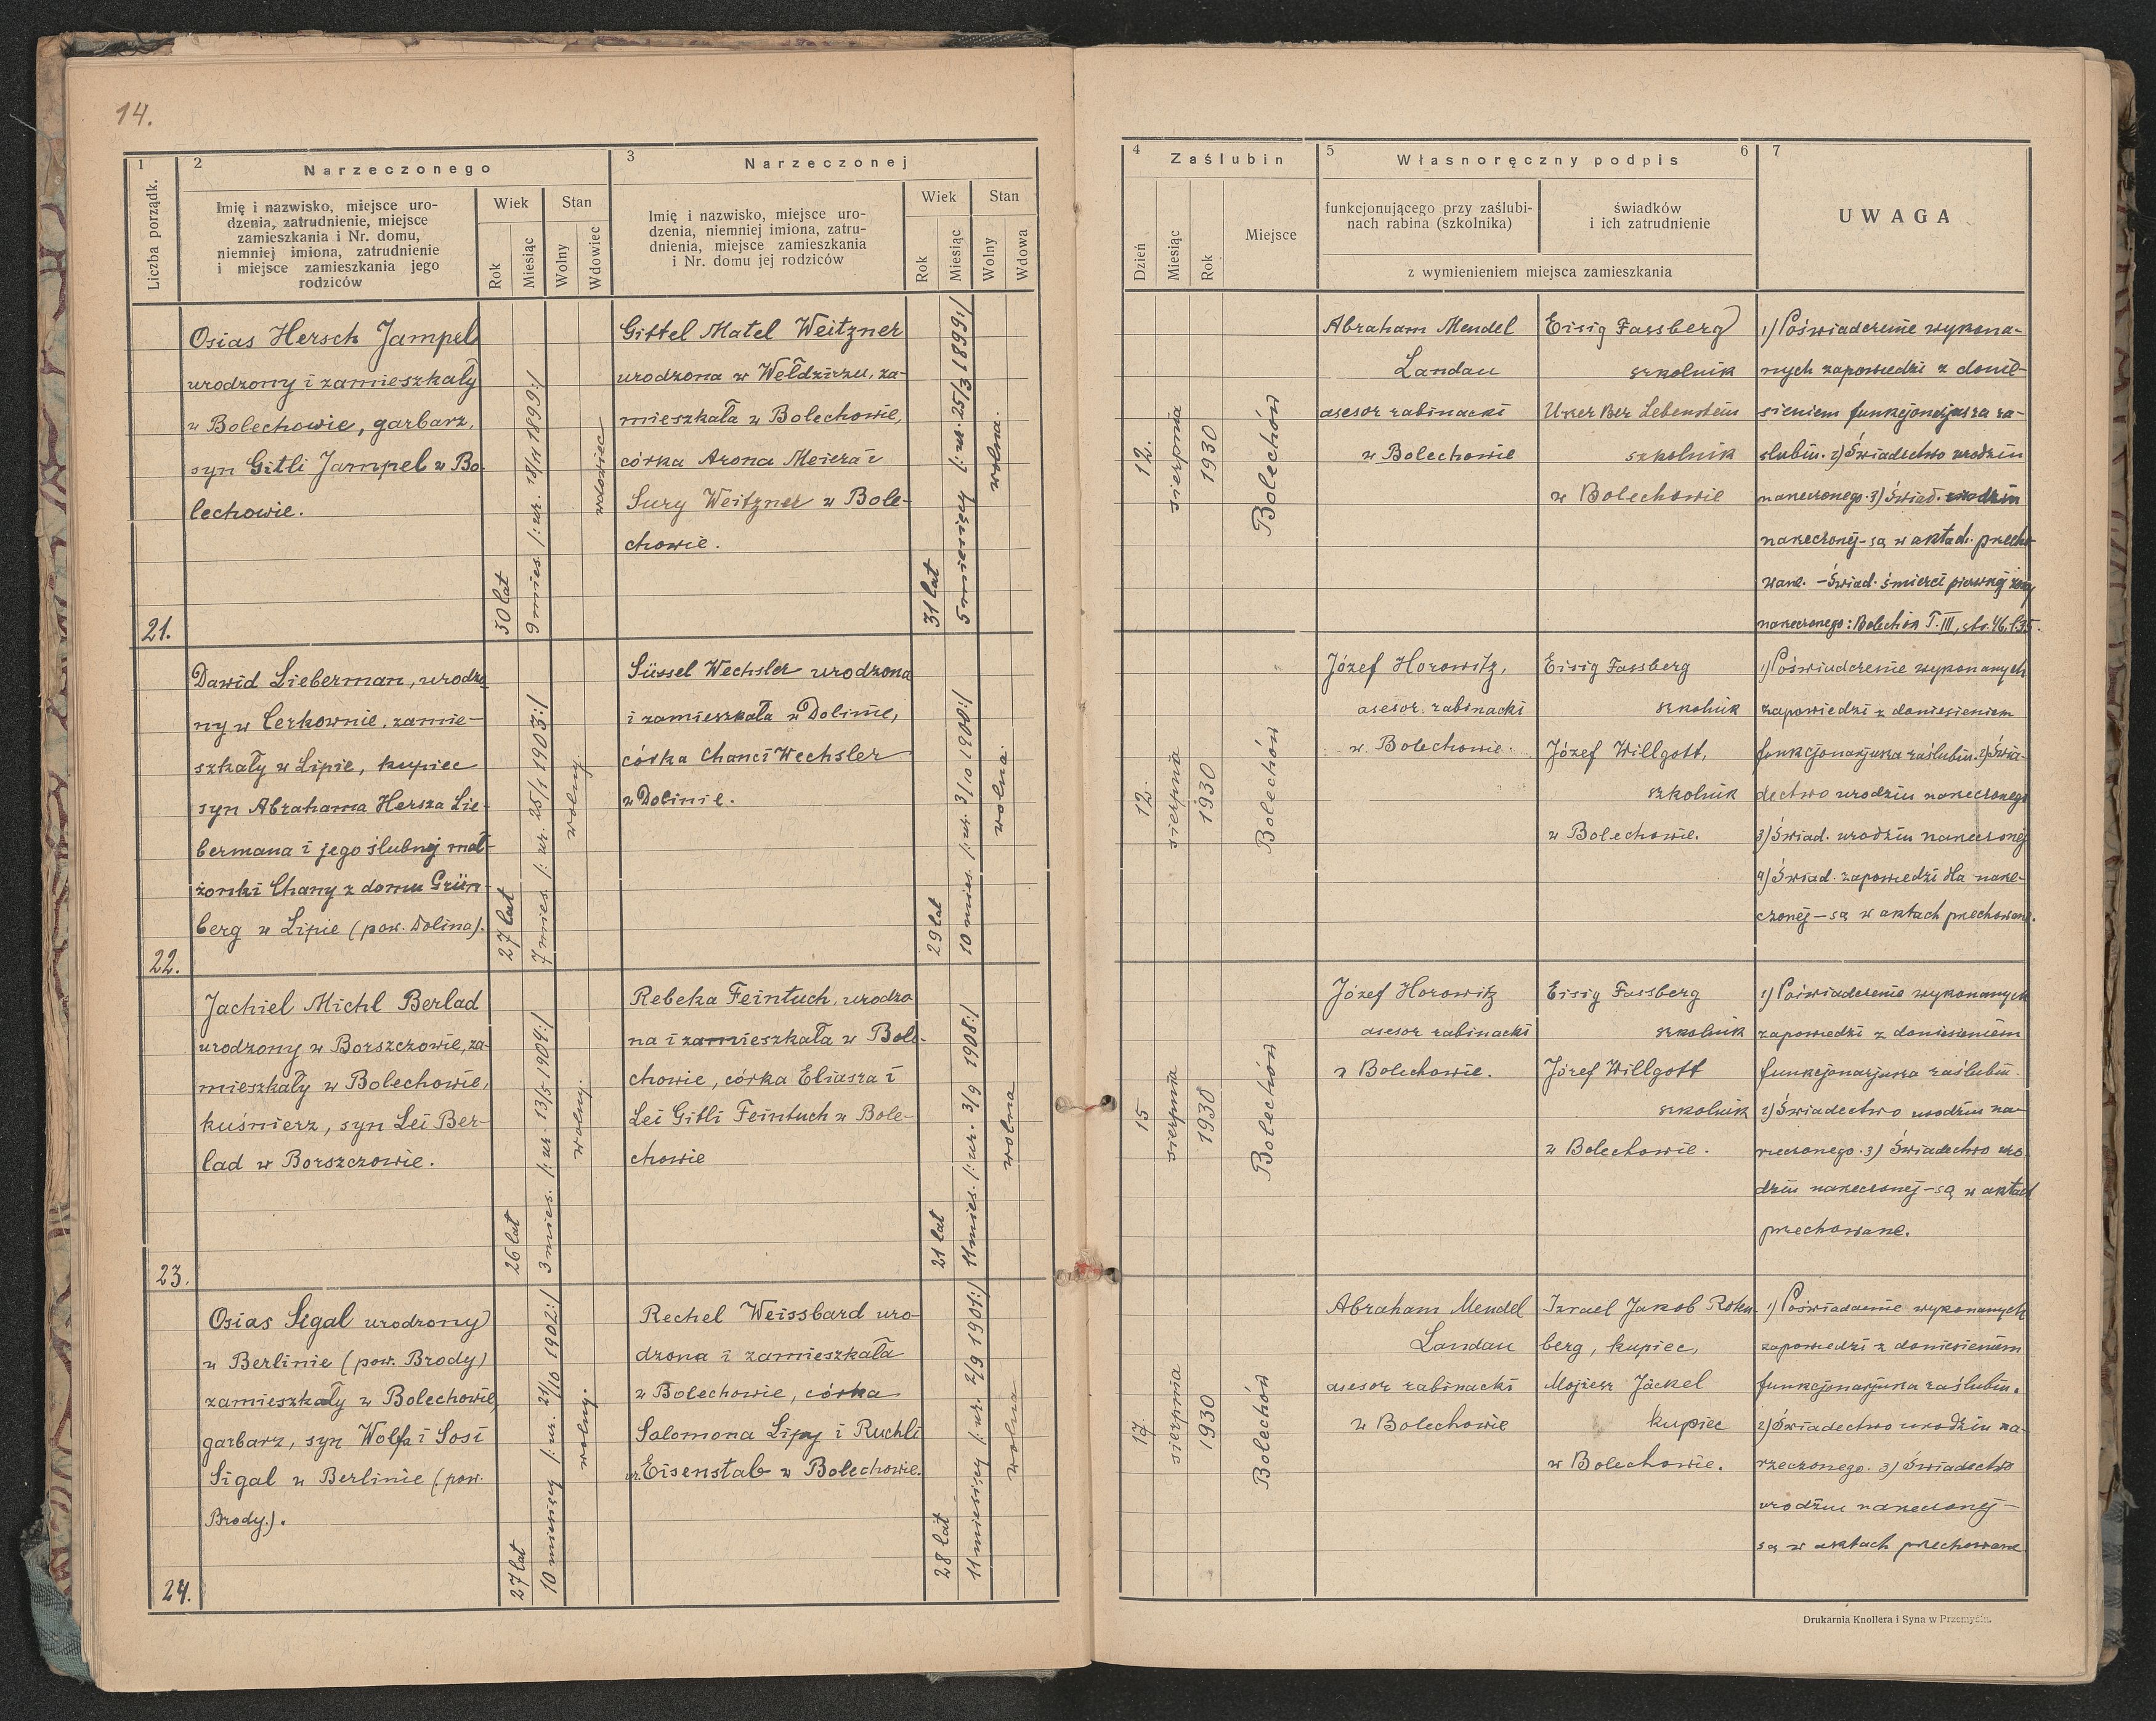 14.
1
2
Narzeczonego
3
Narzeczonej
Liczba porządk.
Imię i nazwisko, miejsce uro-
dzenia, zatrudnienie, miejsce
zamieszkania i Nr. domu,
niemniej imiona, zatrudnienie
i miejsce zamieszkania jego
rodziców
Wiek
Stan
Rok
Miesiąc
Wolny
Wdowiec
Imię i nazwisko, miejsce uro-
dzenia, niemniej imiona, zatru-
dnienia, miejsce zamieszkania
i Nr. domu jej rodziców
Wiek
Stan
Rok
Miesiąc
Wolny
Wdowa
4
Zaślubin
5
Własnoręczny podpis
6
7
Dzień
Miesiąc
Rok
Miejsce
funkcjonującego przy zaślubi-
nach rabina (szkolnika)
świadków
i ich zatrudnienie
z wymienieniem miejsca zamieszkania
UWAGA
21.
Osias Hersch Jampel
urodzony i zamieszkały
w Bolechowie, garbarz,
syn Gitli Jampel w Bo
lechowie.
30 lat
9 mies. /: ur. 18/11 1899:/
wdowiec
Gittel Matel Weitzner
urodzona w Wełdzirzu, za-
mieszkała w Bolechowie,
córka Arona Meiera i
Sury Weitzner w Bole-
chowie.
31 lat
5 miesięcy /: ur. 25/3 1899:/
wolna.
12.
sierpnia
1930
Bolechów
Abraham Mendel
Landau
asesor rabinacki
w Bolechowie
Eisig Fassberg
szkolnik
Uscher Ber Lebenstein
szkolnik
w Bolechowie
1) Poświadczenie wykona-
nych zapowiedzi z donie-
sieniem funkcjonarjusza za-
ślubin. 2) Świadectwo urodzin
narzeczonego. 3) Świad. urodzin
narzeczonej - są w aktach przecho
wane. - Świad. śmierci pierwszej żony
narzeczonego: Bolechów T. III, str. 46, l. 35.
22.
Dawid Lieberman, urodzo
ny w Cerkownie, zamie-
szkały w Lipie, kupiec
syn Abrahama Hersza Lie-
bermana i jego ślubnej mał-
żonki Chany z domu Grün-
berg w Lipie (pow. Dolina).
27 lat
7 mies. /: ur. 25/1 1903:/
wolny.
Süssel Wechsler urodzona
i zamieszkała w Dolinie,
córka Chanci Wechsler
w Dolinie.
29 lat
10 mies. /: ur. 3/10 1900:/
wolna.
12.
sierpnia
1930
Bolechów
Józef Horowitz,
asesor rabinacki
w Bolechowie.
Eisig Fassberg
szkolnik
Józef Willgott,
szkolnik
w Bolechowie.
1) Poświadczenie wykonanych
zapowiedzi z doniesieniem
funkcjonarjusza zaślubin. 2) Świa-
dectwo urodzin narzeczonego
3) Świad. urodzin narzeczonej
4) Świad. zapowiedzi dla narze-
czonej - są w aktach przechowane.
23.
Jachiel Michl Berlad
urodzony w Borszczowie, za-
mieszkały w Bolechowie,
kuśnierz, syn Lei Ber-
lad w Borszczowie.
26 lat
3 mies. /: ur. 13/5 1904:/
wolny.
Rebeka Feintuch, urodzo
na i zamieszkała w Bole-
chowie, córka Eliasza i
Lei Gitli Feintuch w Bole-
chowie
21 lat
11 mies. /: ur. 3/9 1908:/
wolna
15
sierpnia
1930
Bolechów
Józef Horowitz
asesor rabinacki
w Bolechowie.
Eisig Fassberg
szkolnik
Józef Willgott
szkolnik
w Bolechowie.
1) Poświadczenie wykonanych
zapowiedzi z doniesieniem
funkcjonarjusza zaślubin.
2) Świadectwo urodzin na-
rzeczonego. 3) Świadectwo uro
dzin narzeczonej - są w aktach
przechowane.
24.
Osias Sigal urodzony
w Berlinie (pow. Brody)
zamieszkały w Bolechowie,
garbarz, syn Wolfa i Sosi
Sigal w Berlinie (pow.
Brody.).
27 lat
10 miesięcy /: ur. 21/10 1902:/
wolny.
Rechel Weissbard uro-
dzona i zamieszkała
w Bolechowie, córka
Salomona Lipy i Ruchli
Eisenstab w Bolechowie.
28 lat
11 miesięcy /: ur. 2/9 1901:/
wolna
17.
sierpnia
1930
Bolechów
Abraham Mendel
Landau
asesor rabinacki
w Bolechowie
Izrael Jakob
berg, kupiec,
Mojżesz Jäckel
kupiec
w Bolechowie.
1) Poświadczenie wykonanych
zapowiedzi z doniesieniem
funkcjonarjusza zaślubin.
2) Świadectwo urodzin na-
rzeczonego. 3) Świadectwo
urodzin narzeczonej -
są w aktach przechowane.
Drukarnia Knollera i Syna w Przemyślu.